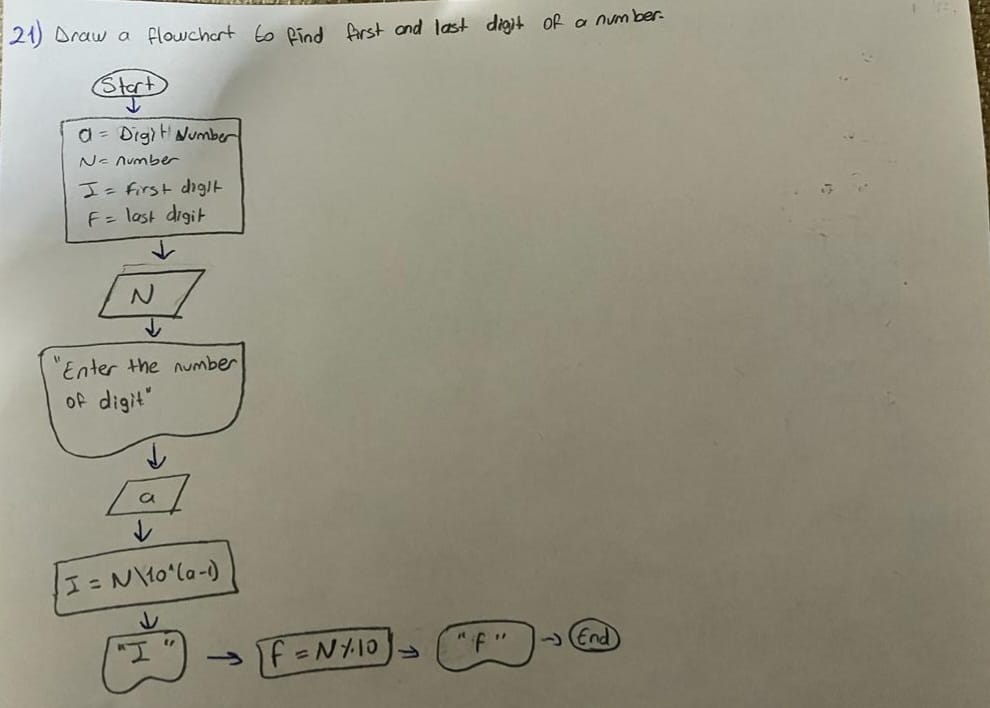 21) Draw a flowchart to find first and last digit of a number.
Start
a = Digit Number
N = number
I = first digit
F = last digit
N
"Enter the number
of digit"
a
I = N\10^(a-1)
"I"
F = N%10
"F"
End